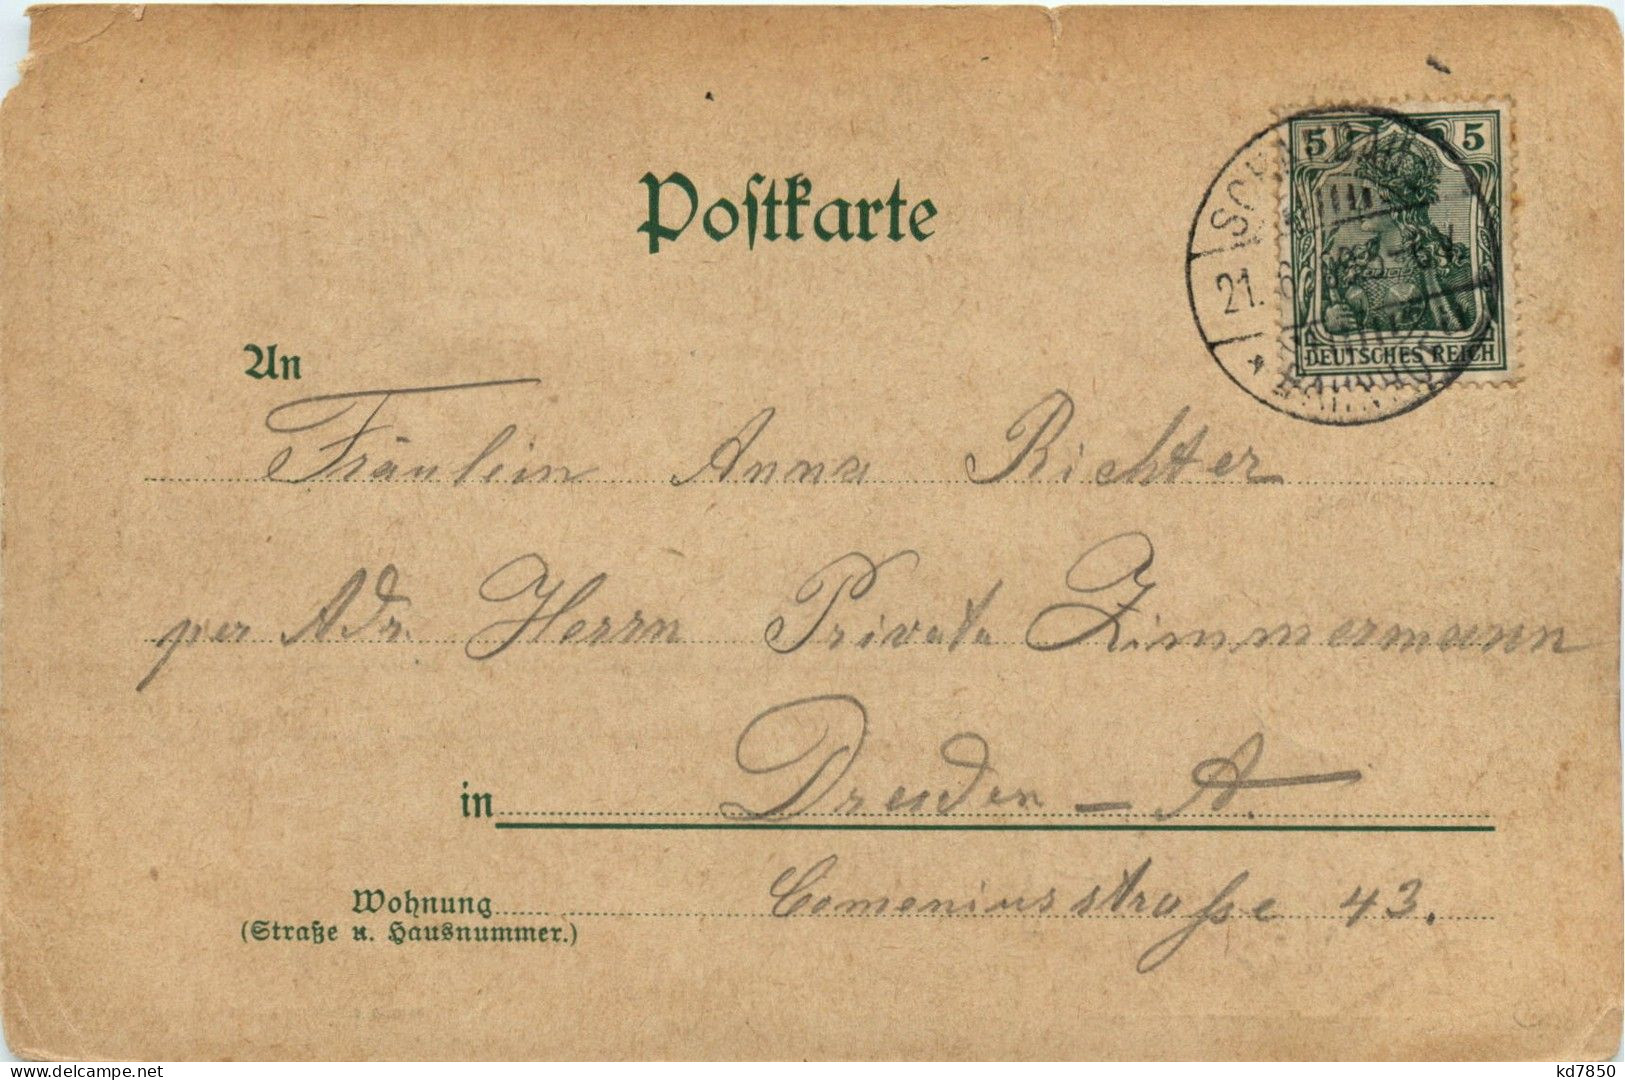 Postkarte
5 5
DEUTSCHES REICH
21. 6.
BAHNHOF
An
Fräulein Anna Richter
per Adr. Herrn Privata Zimmermann
in Dresden – A.
Wohnung Comeniusstrasse 43.
(Straße u. Hausnummer.)
delcampe.net
kd7850